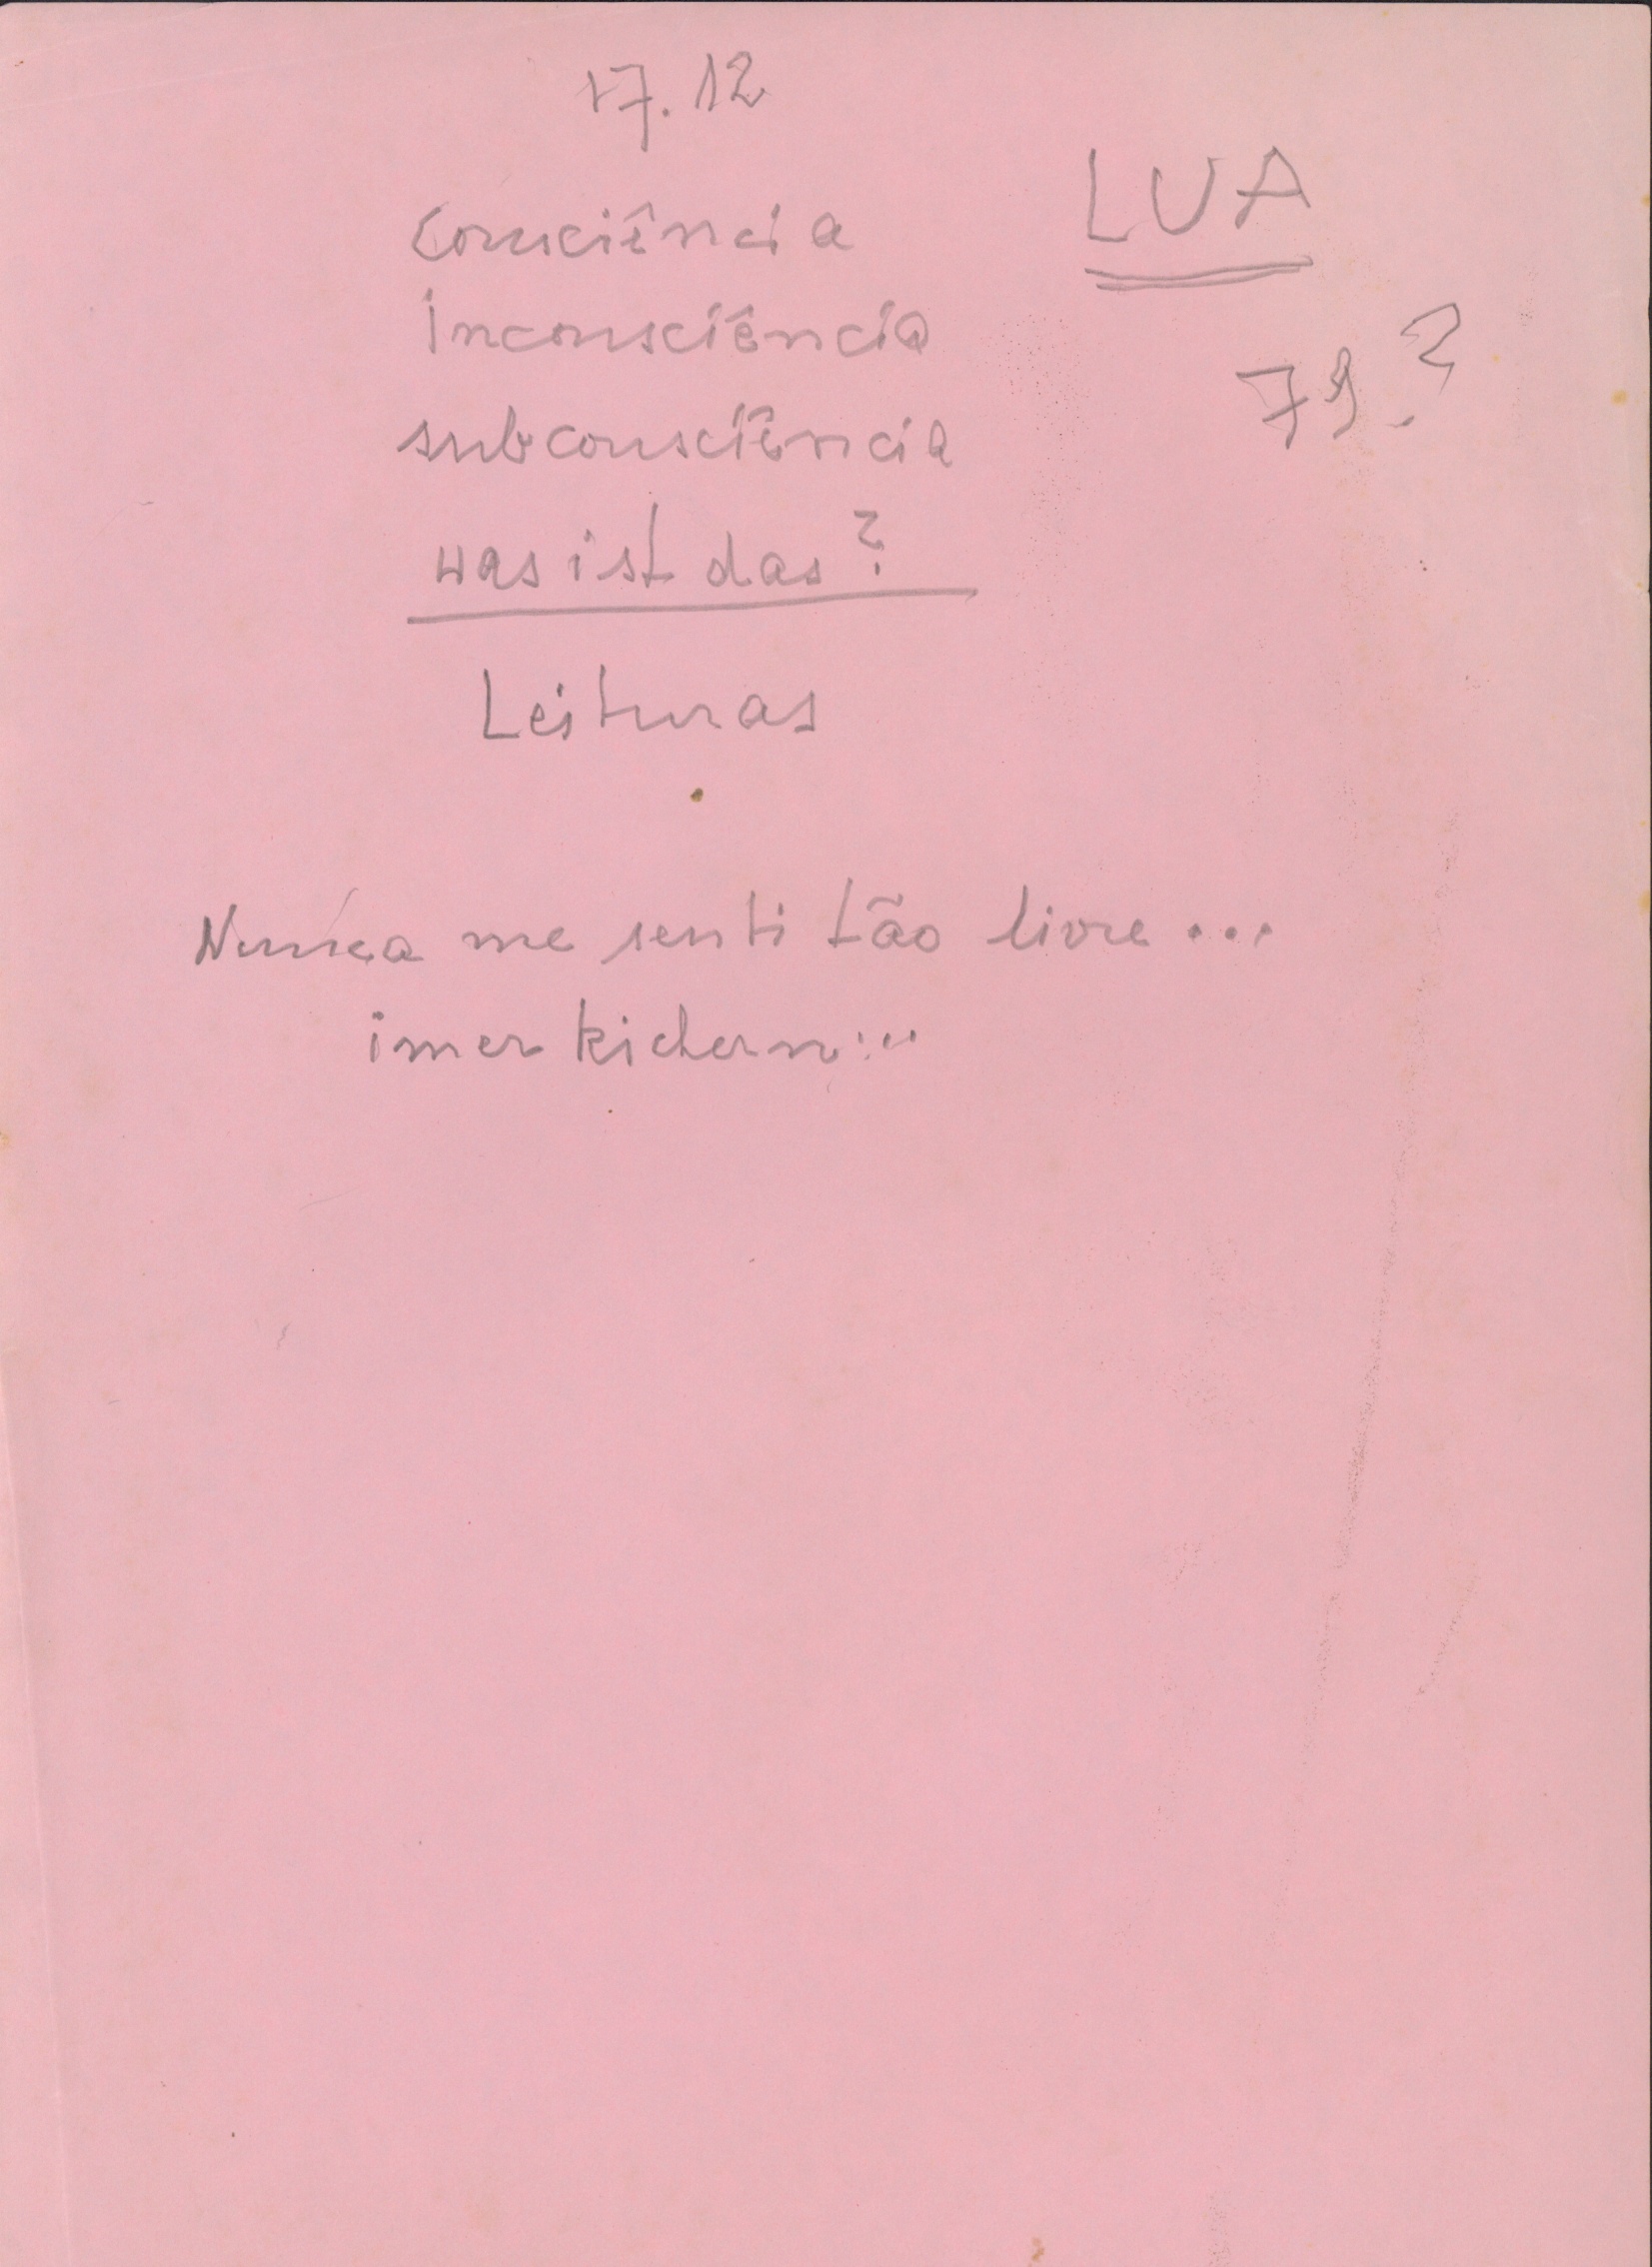 17.12
LUA
Consciência
Inconsciência
79?
subconsciência
was ist das?
Leituras
Nunca me senti tão livre...
imer kichern...